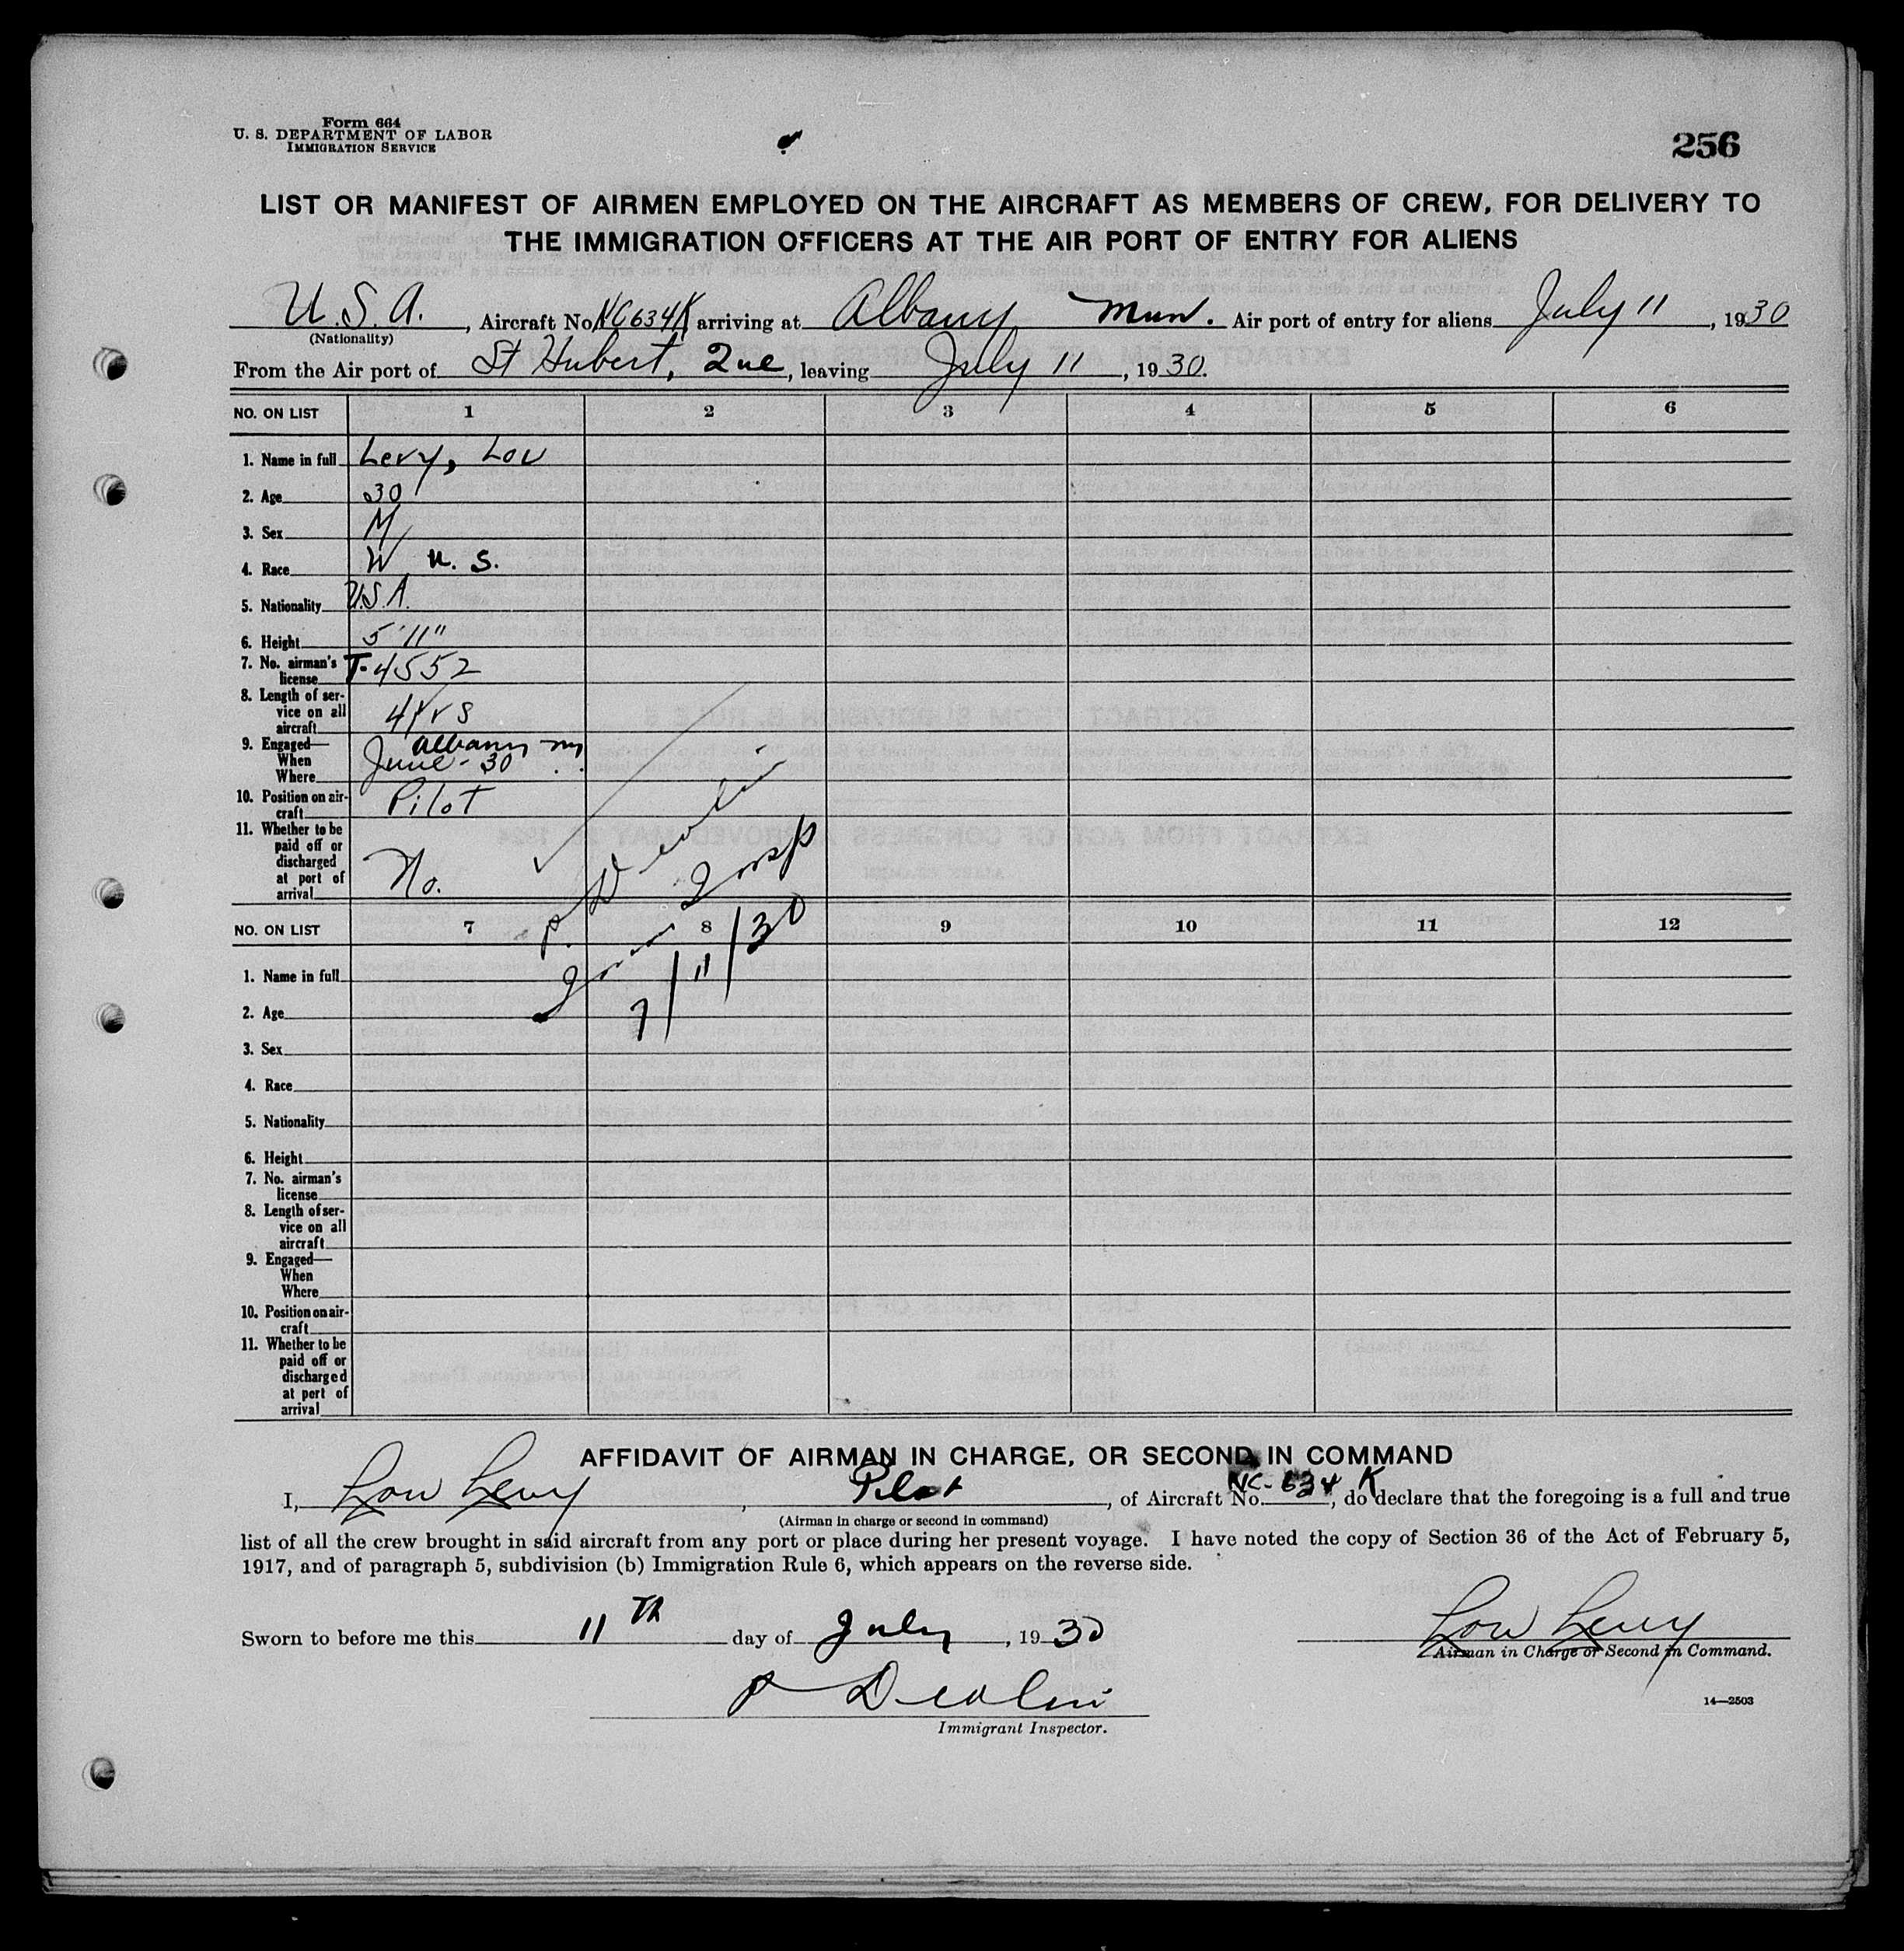 Form 664
U. S. DEPARTMENT OF LABOR
IMMIGRATION SERVICE
256
LIST OR MANIFEST OF AIRMEN EMPLOYED ON THE AIRCRAFT AS MEMBERS OF CREW, FOR DELIVERY TO
THE IMMIGRATION OFFICERS AT THE AIR PORT OF ENTRY FOR ALIENS
U.S.A., Aircraft No. NC634K arriving at Albany Mun. Air port of entry for aliens July 11, 1930
(Nationality)
From the Air port of St Hubert, Que, leaving July 11, 1930.
NO. ON LIST 1 2 3 4 5 6
1. Name in full Levy, Lou
2. Age 30
3. Sex M
4. Race W U. S.
5. Nationality U.S.A.
6. Height 5'11"
7. No. airman's
license T-4552
8. Length of ser-
vice on all
aircraft 4 yrs
9. Engaged— Albany NY
When June - 30
Where
10. Position on air-
craft Pilot
11. Whether to be
paid off or
discharged
at port of
arrival No.
P. Devlin
Insp
7/11/30
NO. ON LIST 7 8 9 10 11 12
1. Name in full
2. Age
3. Sex
4. Race
5. Nationality
6. Height
7. No. airman's
license
8. Length of ser-
vice on all
aircraft
9. Engaged—
When
Where
10. Position on air-
craft
11. Whether to be
paid off or
discharged
at port of
arrival
AFFIDAVIT OF AIRMAN IN CHARGE, OR SECOND IN COMMAND
I, Lou Levy, Pilot, of Aircraft No. NC-634K, do declare that the foregoing is a full and true
(Airman in charge or second in command)
list of all the crew brought in said aircraft from any port or place during her present voyage. I have noted the copy of Section 36 of the Act of February 5,
1917, and of paragraph 5, subdivision (b) Immigration Rule 6, which appears on the reverse side.
Sworn to before me this 11th day of July, 1930
Lou Levy
Airman in Charge or Second in Command.
P Devlin
Immigrant Inspector.
14—2503